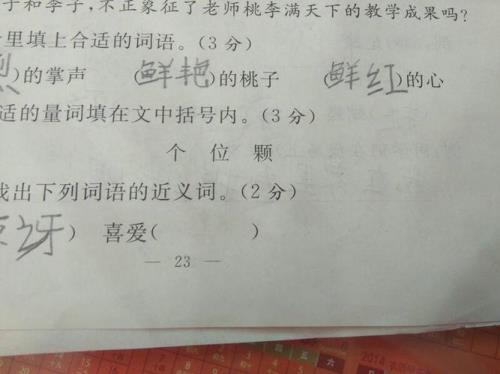 子和李子,不正象征了老师桃李满天下的教学成果吗?
里填上合适的词语。(3分)
烈)的掌声 (鲜艳)的桃子 (鲜红)的心
适的量词填在文中括号内。(3分)
个 位 颗
找出下列词语的近义词。(2分)
讶) 喜爱( )
— 23 —
2014